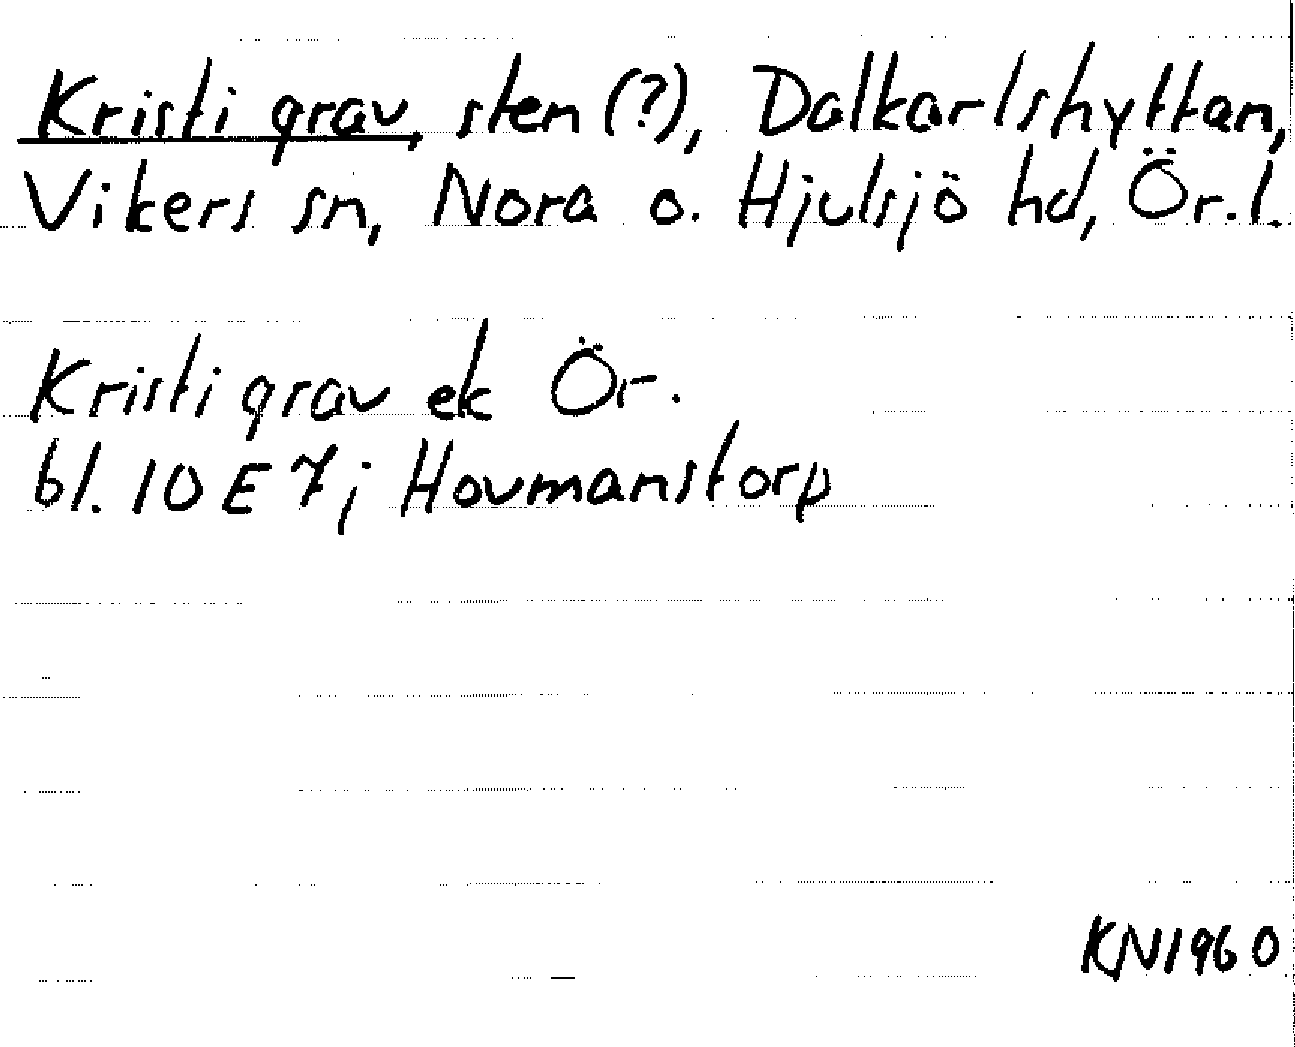 Kristi grav, sten (?), Dalkarlshyttan,
Vikers sn, Nora o. Hjulsjö hd, Ör.l.
Kristi grav ek Ör.
bl. 10 E 7j Hovmanstorp
KN1960